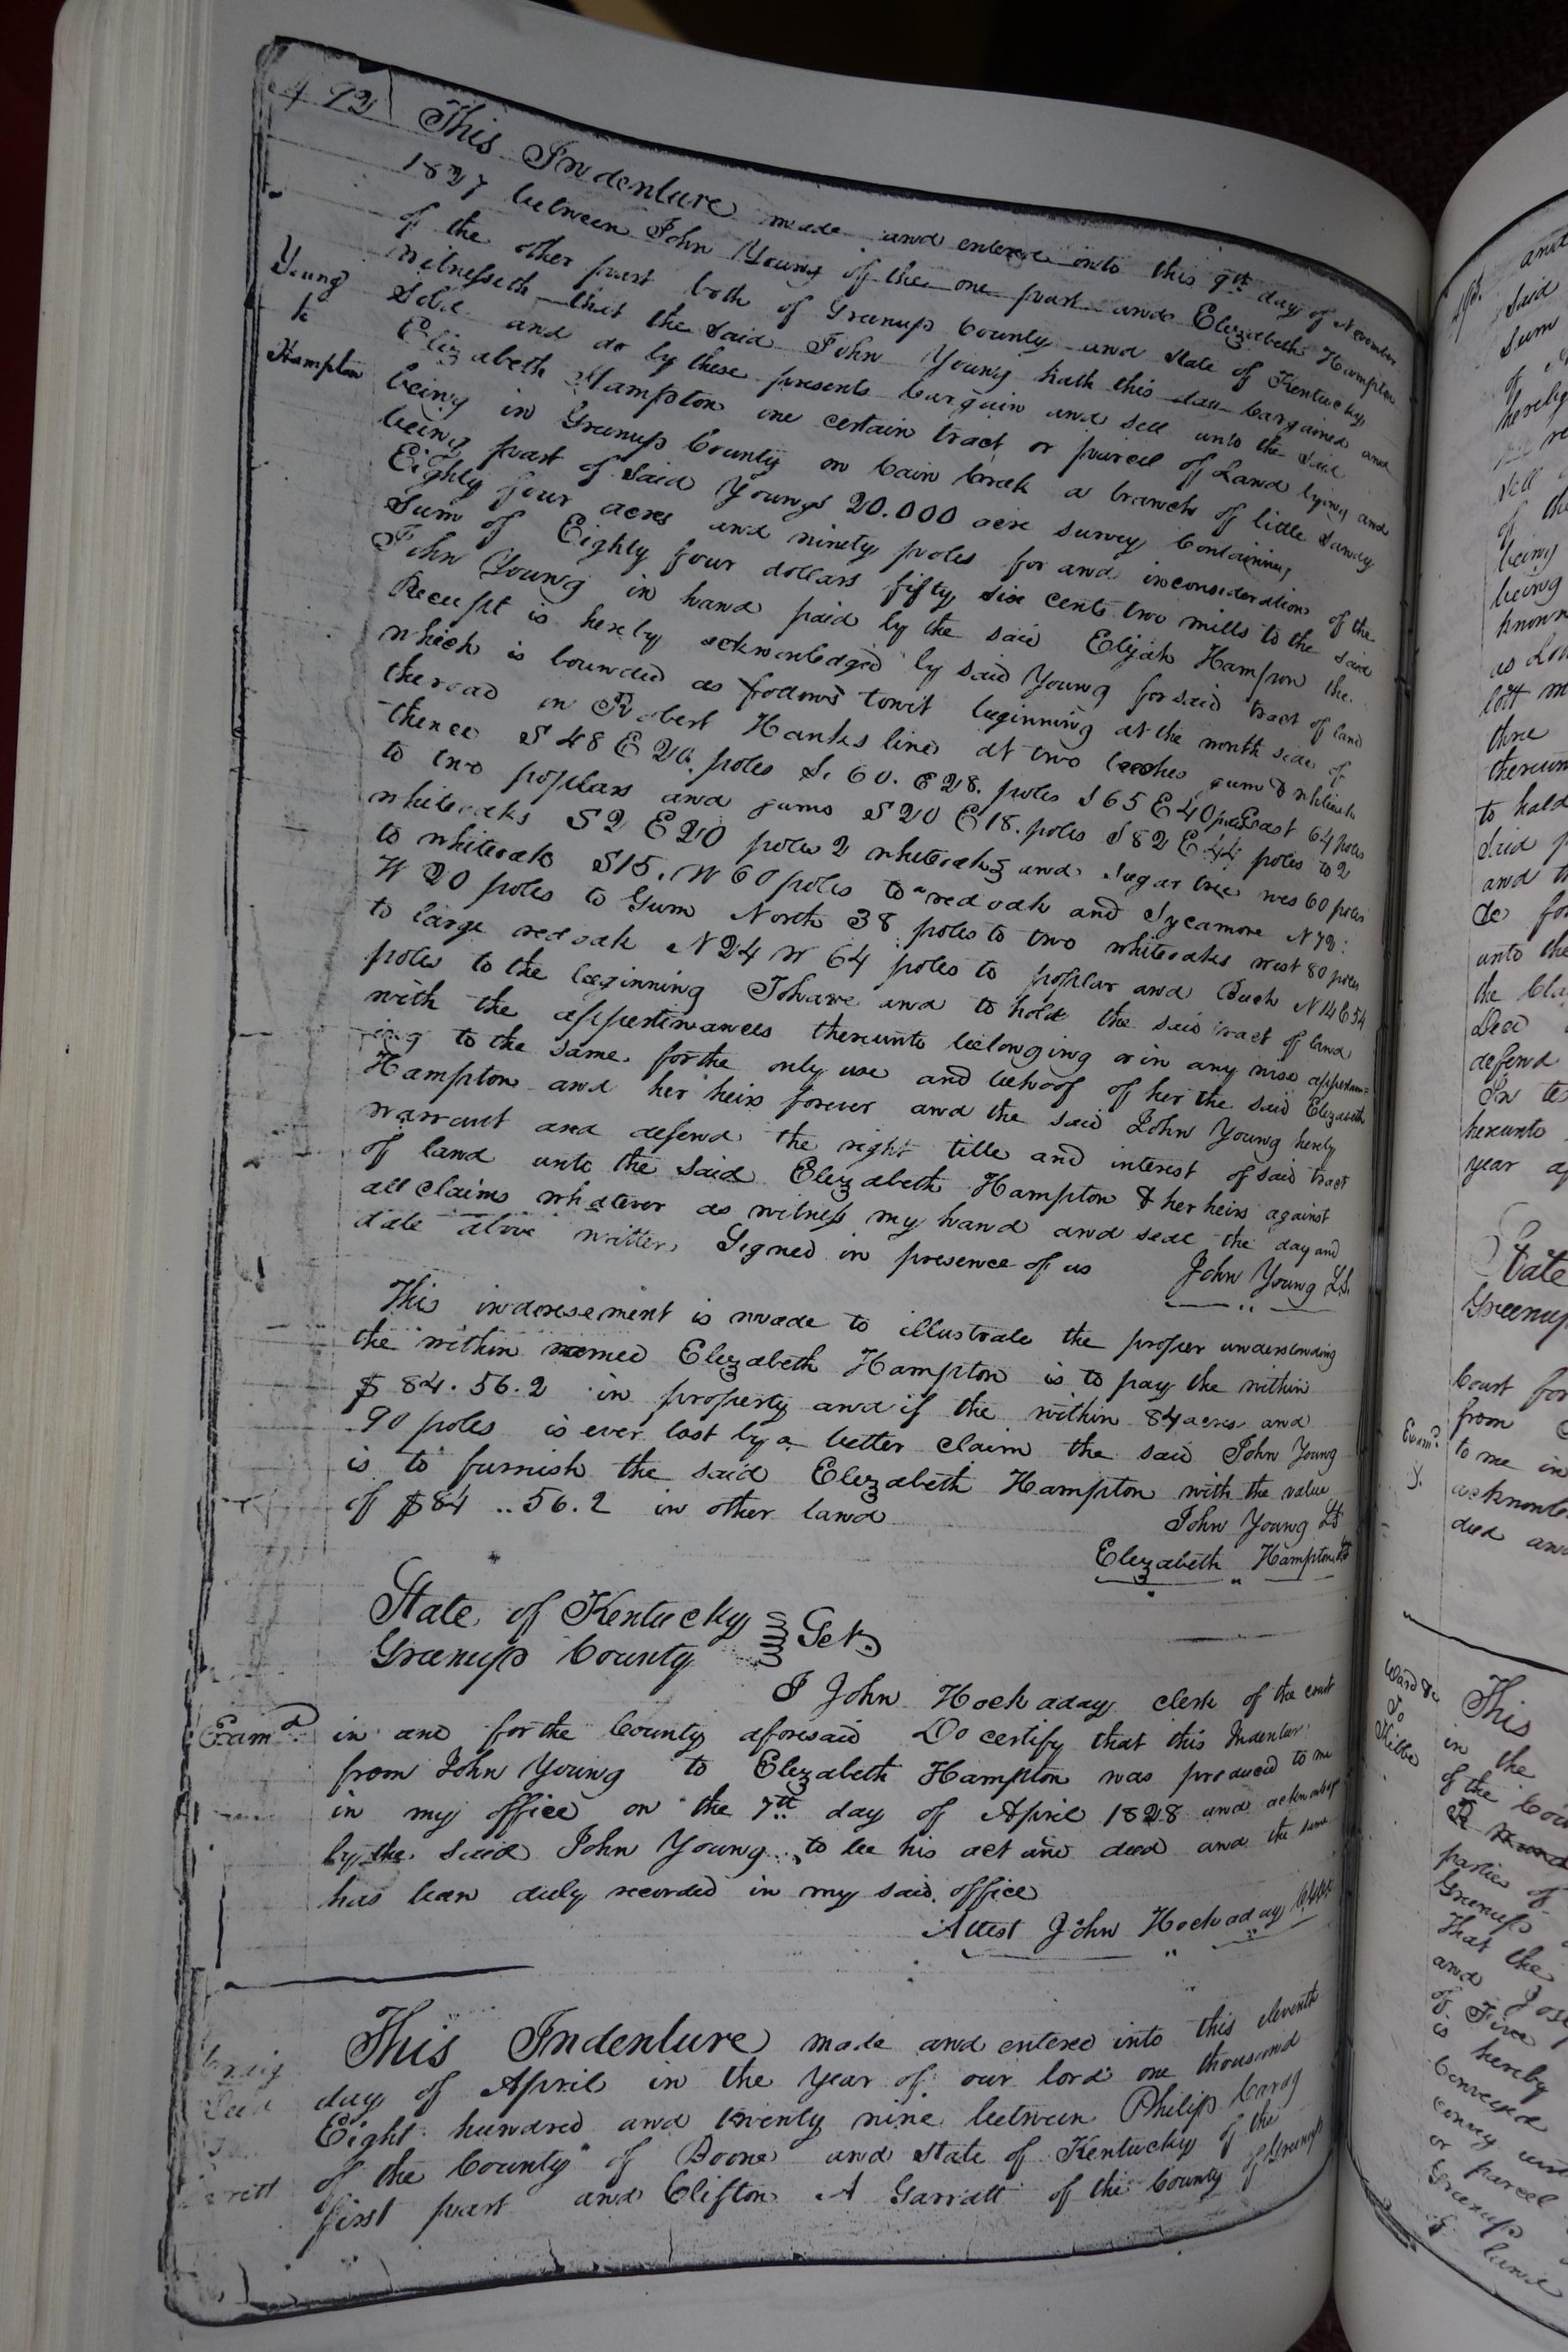 422
This Indenture made and entered into this 9th day of November
1827 between John Young of the one part and Elizabeth Hampton
of the other part both of Greenup County and State of Kentucky
Witnesseth that the said John Young hath this day bargained and
Young
to
Hampton
Sold and do by these presents bargain and sell unto the said
Elizabeth Hampton one certain tract or parcel of Land lying and
being in Greenup County on Cain Creek a branch of little Sandy
being part of said Youngs 20.000 acre survey Containing
Eighty four acres and ninety poles for and inconsideration of the
Sum of Eighty four dollars fifty six cents two mills to the said
John Young in hand paid by the said Elijah Hampton the
Receipt is hereby acknowledged by said Young for said tract of land
which is bounded as follows towit beginning at the north side of
the road in Robert Hanks line at two beeches gum & whiteoak
thence S 48 E 20. poles S. 60. E 28. poles S 65 E 40 poles East 64 poles
to two poplars and gums S 20 E 18. poles S 82 E 44 poles to 2
whiteoaks S 2 E 20 poles 2 whiteoaks and Sugar tree wes 60 poles
to whiteoak S 15. W 60 poles to a red oak and Sycamore N 72:
W 20 poles to Gum North 38 poles to two whiteoaks west 80 poles
to large redoak N 24 W 64 poles to poplar and Beech N 14 E 54
poles to the beginning To have and to hold the said tract of land
with the appertinances thereunto belonging or in any wise appertain=
ing to the same for the only use and behoof of her the said Elizabeth
Hampton and her heirs forever and the said John Young hereby
warrant and defend the right title and interest of said tract
of land unto the said Elizabeth Hampton & her heirs against
all claims whatever as witness my hand and seal the day and
date above written Signed in presence of us John Young LS.
This indorsement is made to illustrate the proper understanding
the within named Elizabeth Hampton is to pay the within
$ 84.56.2 in property and if the within 84 acres and
90 poles is ever lost by a better claim the said John Young
is to furnish the said Elizabeth Hampton with the value
of $84..56.2 in other land
John Young LS
Elizabeth Hampton LS
State of Kentucky
Greenup County Sct.
I John Hockaday clerk of the court
Examd. in and for the County aforesaid Do certify that this Indentur
from John Young to Elizabeth Hampton was produced to me
in my office on the 7th day of April 1828 and acknowledgd
by the said John Young to be his act and deed and the same
has been duly recorded in my said office
Attest John Hockaday Clk
This Indenture made and entered into this eleventh
day of April in the year of our lord one thousand
Eight hundred and twenty nine between Philip Carag
of the County of Boone and state of Kentucky of the
first part and Clifton A Garratt of the County of Greenup
and
said
sum
hereby
sell
of the
being
being
known
as
lott
three
thereun
to hold
said
and
unto the
the
defend
In te
hereunto
year
State
Greenup
Court for
from
to me in
acknowle
deed and
Examd.
Ward &c
To
This
in the
of the
parties of
Greenup
That the
and
of Five
is hereby
Conveyed
or parcel
Greenup
land